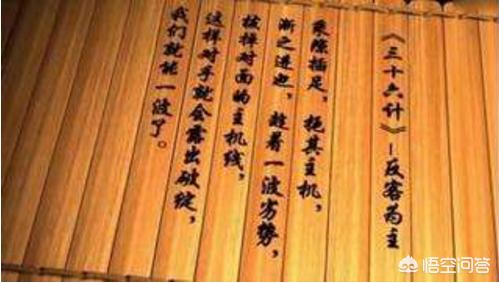 《三十六计》-反客为主
乘隙插足，扼其主机，
渐之进也，趁着一波劣势，
拔掉对面的主机线，
这样对手就会露出破绽，
我们就能一波了。
悟空问答